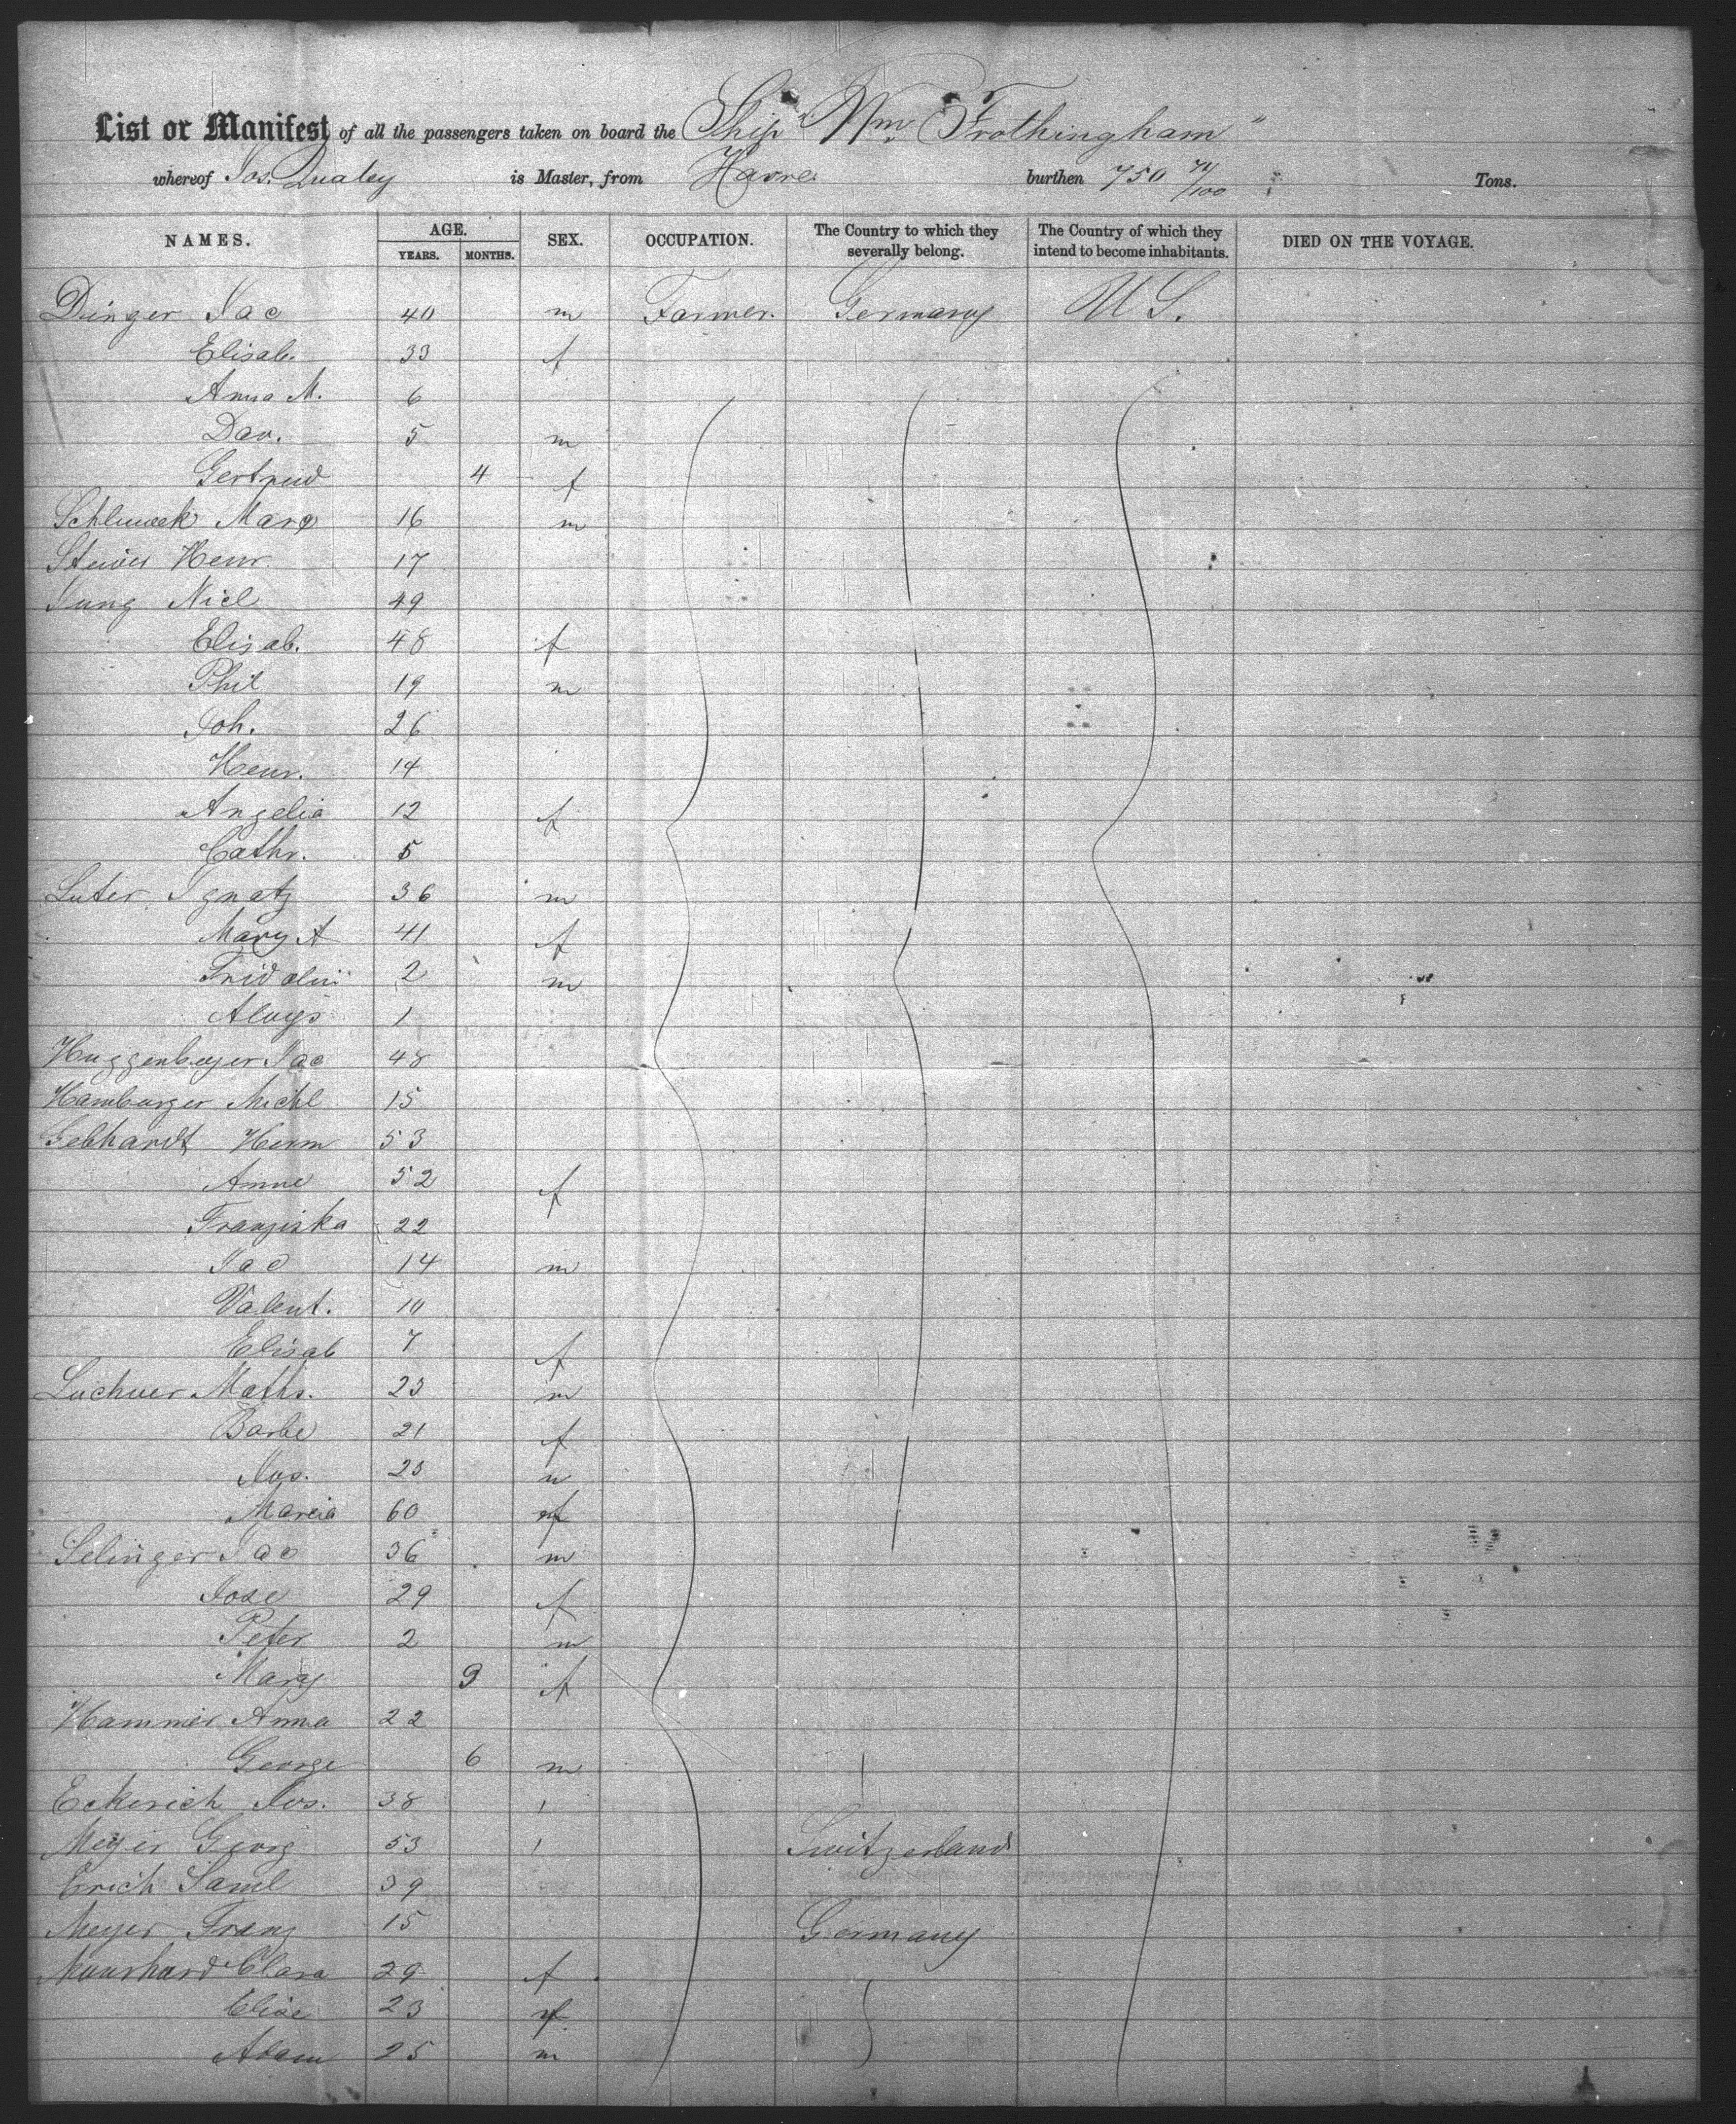 List or Manifest of all the passengers taken on board the Ship "Wm Frothingham"
whereof Jos. Qualey is Master, from Havre. burthen 750 74/100 Tons.
NAMES. AGE. YEARS. MONTHS. SEX. OCCUPATION. The Country to which they severally belong. The Country of which they intend to become inhabitants. DIED ON THE VOYAGE.
Dinger Jac 40 m Farmer. Germany U S.
Elisab. 33 f
Anna M. 6
Dav. 5 m
Gertrud 4 f
16 m
Henr. 17
Jung Nicl 49
Elisab. 48 f
Phil 19 m
Joh. 26
Henr. 14
Angelia 12 f
Cathr. 5
Luter Ignatz 36 m
Mary A 41 f
Fridolin 2 m
Aloys 1
Huggenbeyer Jac 48
Hamburger Michl 15
Gebhardt Herm 53
Anne 52 f
Franziska 22
Jac 14 m
Valent. 10
Elisab 7 f
Luchner Maths. 23 m
Barbe 21 f
Jos. 23 m
Maria 60 f
Selinger Jac 36 m
Jose 29 f
Peter 2 m
Mary 9 f
Hammer Anna 22
George 6 m
Eckerich Jos. 38 ,
Meyer Georg 53 , Switzerland
Erich Saml 39
Meyer Franz 15 Germany
Clara 29 f
Elise 23 f
Adam 25 m